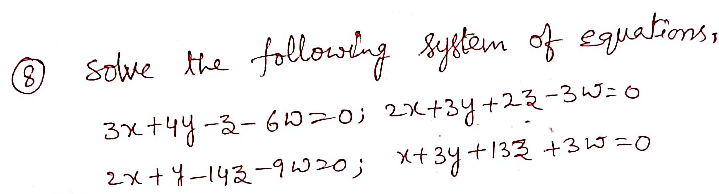 ⑧ Solve the following system of equations,
3x+4y-z-6w=0; 2x+3y+2z-3w=0
2x+y-14z-9w=0; x+3y+13z+3w=0